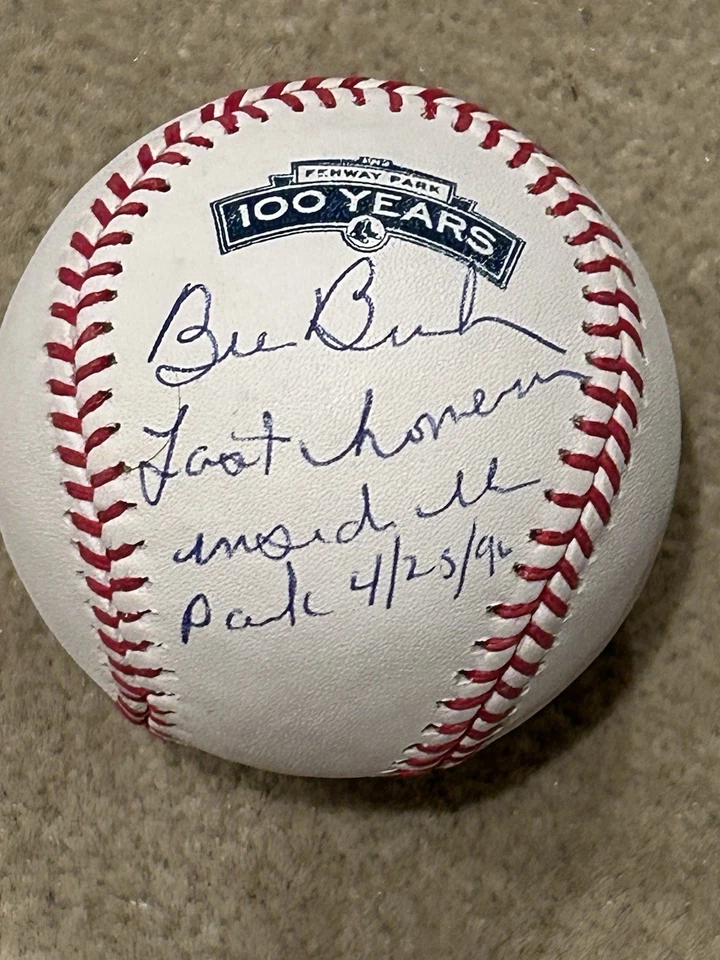 FENWAY PARK
100 YEARS
Bill Buck
Last homerun
insid the
Park 4/25/90